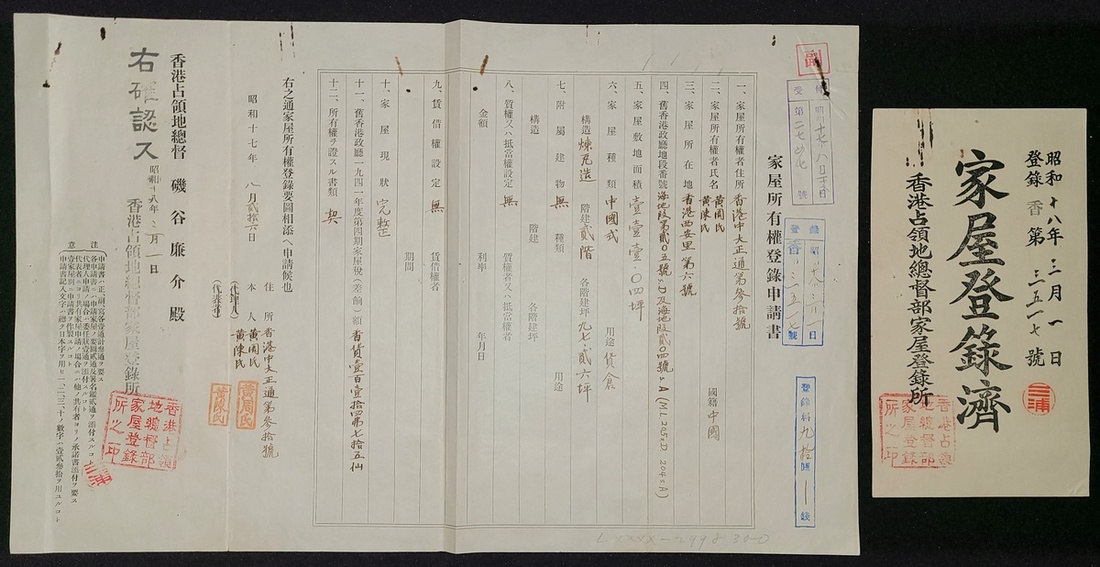 副
受
昭和十七・八・二五日
第二七 七號
登錄
香三五一七號
登錄料九拾圓 ― 錢
家屋所有權登錄申請書
一、家屋所有權者住所 香港中大正通第參拾號
二、家屋所有權者氏名 黃周氏 黃陳氏 國籍 中國
三、家屋所在地 香港西安里第六號
四、舊香港政廳地段番號 海地段第貳0五號D及海地段貳0四號A (ML 205 s.D 204 s A)
五、家屋敷地面積 壹壹壹・〇四坪
六、家屋種類 中國式 用途 貨倉
構造 煉瓦造 階建 貳階 各階建坪 九七・貳六坪
七、附屬建物 無 種類 用途
構造 階建 各階建坪
八、質權又ハ抵當權設定 無 質權者又ハ抵當權者
金額 利率 年月日
九、賃借權設定 無 賃借權者
期間
十、家屋現狀 完整
十一、舊香港政廳一九四一年度第四期家屋稅(差餉)額 香貨壹百壹拾四弗七拾五仙
十二、所有權ヲ證スル書類 契
右之通家屋所有權登錄要圖相添ヘ申請候也
昭和十七年 八月貳拾六日
住所 香港中大正通第參拾號
本人 黃周氏 黃陳氏
(代理人)
(代表者)
黃周氏
黃陳氏
香港占領地總督 磯谷廉介殿
右確認ス
昭和十八年三月一日
香港占領地總督部家屋登錄所
香港占領地總督部家屋登錄所之印
三浦
注意
一、申請書ハ正、副、寫各壹通計參通ヲ要ス
LXXXX-2998 300
昭和十八年三月一日
登錄香第三五一七號
三浦
家屋登錄濟
香港占領地總督部家屋登錄所
香港占領地總督部家屋登錄所之印